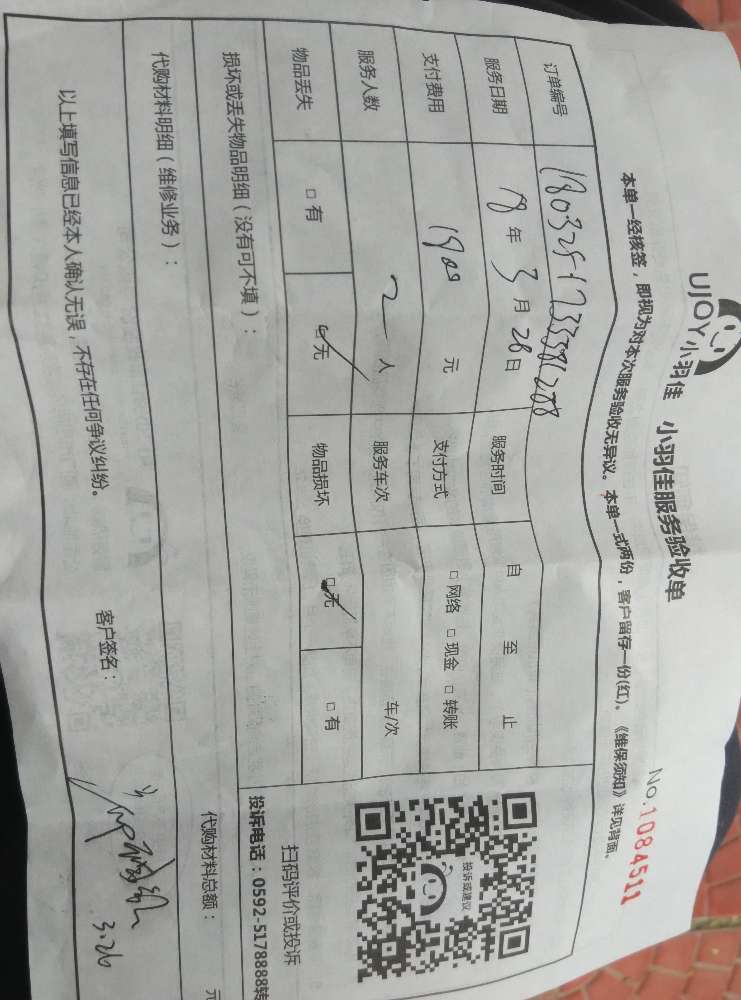 UJOY小羽佳 小羽佳服务验收单
No.1084511
本单一经核签，即视为对本次服务验收无异议。本单一式两份，客户留存一份(红)。《维保须知》详见背面。
订单编号
服务日期 18年3月28日 服务时间 自 至 止
支付费用 元 支付方式 □网络 □现金 □转账
服务人数 2人 服务车次 车/次
物品丢失 □有 □无 物品损坏 □无 □有
损坏或丢失物品明细（没有可不填）：
代购材料明细（维修业务）：
代购材料总额： 元
投诉或建议
扫码评价或投诉
投诉电话：0592-5178888转
以上填写信息已经本人确认无误，不存在任何争议纠纷。
客户签名： 3.26